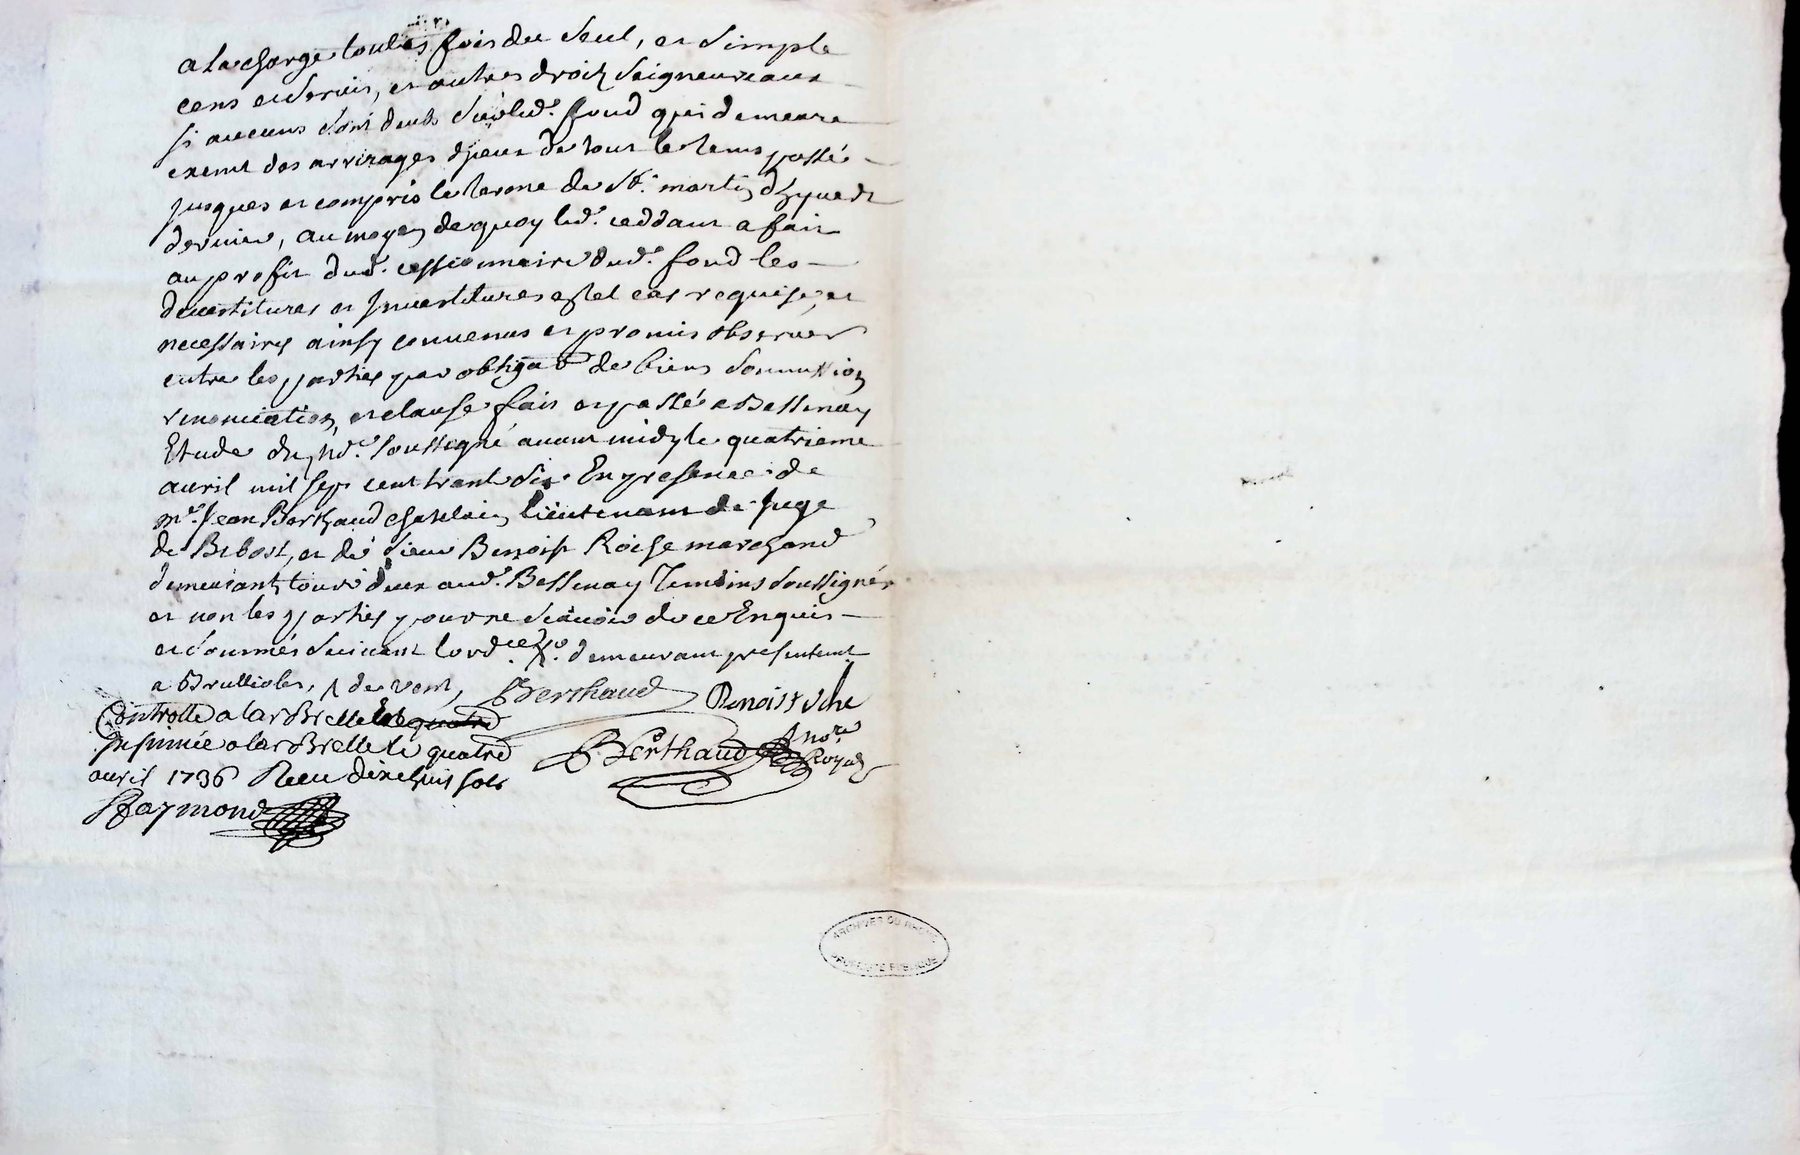 a la charge toutes fois du seul, et simple
cens et servis, et autres droitz seigneuriaux
si aucuns sont deubs sur led.e fond qui demeure
exemt des arrerages d'jceux de tout le tems passé
jusques et compris le terme de St. martin d'hyvert
dernier, au moyen de quoy led.t ceddant a fait
au profit dud.t cessionnaire dud.t fond les
devestitures et jnvestitures en tel cas requise, et
necessaires ainsy convenus et promis observer
entre les parties par obligaon de biens soumission
renonciation, et clause fait et passé a Bessenay
Etude du no.re soussigné avant midy le quatrieme
avril mil sept cent trent six En presence de
m.e Jean Berthaud chatelain lieutenant de juge
de Bibost, et de sieur Benoist marchand
demeurant tous deux aud.t Bessenay temoins soussignés
et non les parties pour ne scavoir de ce Enquis
et sommés suivant lord.ce demeurant presentemt
a Brullioles, de vent, Berthaud Benoist
Controllé a larbrelle le quatre
Insinuée a larbrelle le quatre Berthaud no.re Royal
avril 1736 Receu dixehuit sols
Raymond
ARCHIVES DU RHONE
PROPRIÉTÉ PUBLIQUE